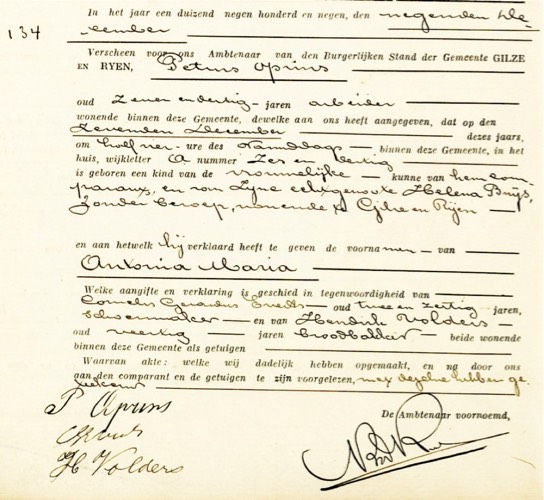 134
In het jaar een duizend negen honderd en negen, den negenden De-
cember
Verscheen voor ons Ambtenaar van den Burgerlijken Stand der Gemeente GILZE
EN RYEN, Petrus Oprins
oud zeven en dertig jaren arbeider
wonende binnen deze Gemeente, dewelke aan ons heeft aangegeven, dat op den
zevenden December dezes jaars,
om half ure des Namiddags binnen deze Gemeente, in het
huis, wijkletter A nummer zes en dertig
is geboren een kind van de vrouwelijke kunne van hem com-
parant, en van zijne echtgenoote Helena Buijs,
zonder beroep, wonende te Gilze en Rijen
en aan hetwelk hij verklaard heeft te geven de voornamen van
Antonia Maria
Welke aangifte en verklaring is geschied in tegenwoordigheid van
Cornelis Gerardus oud twee en zestig jaren,
schoenmaker en van Hendrik Volders
oud veertig jaren broodbakker beide wonende
binnen deze Gemeente als getuigen
Waarvan akte: welke wij dadelijk hebben opgemaakt, en na door ons
aan den comparant en de getuigen te zijn voorgelezen, met dezelve hebben ge-
teekend
P Oprins
De Ambtenaar voornoemd,
H Volders